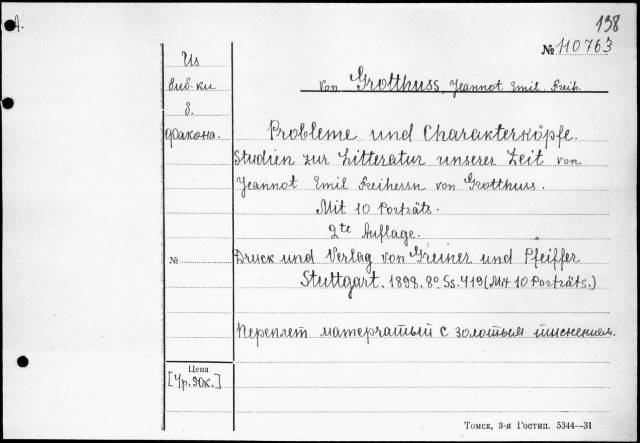 А.
138
№ 110763
Из
биб-ки
в.
факона.
von Grotthuss, Jeannot Emil. Freih.
Probleme und Charakterköpfe.
Studien zur Litteratur unserer Zeit von
Jeannot Emil Freiherrn von Grotthuss.
Mit 10 Porträts.
2te Auflage.
№
Druck und Verlag von Greiner und Pfeiffer
Stuttgart. 1898. 8º. Ss. 419 (Mit 10 Porträts.)
Переплет матерчатый с золотым тиснением.
Цена
[4р. 90к.]
Томск, 3-я Гостип. 5344—31